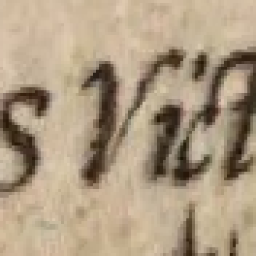 s Vict